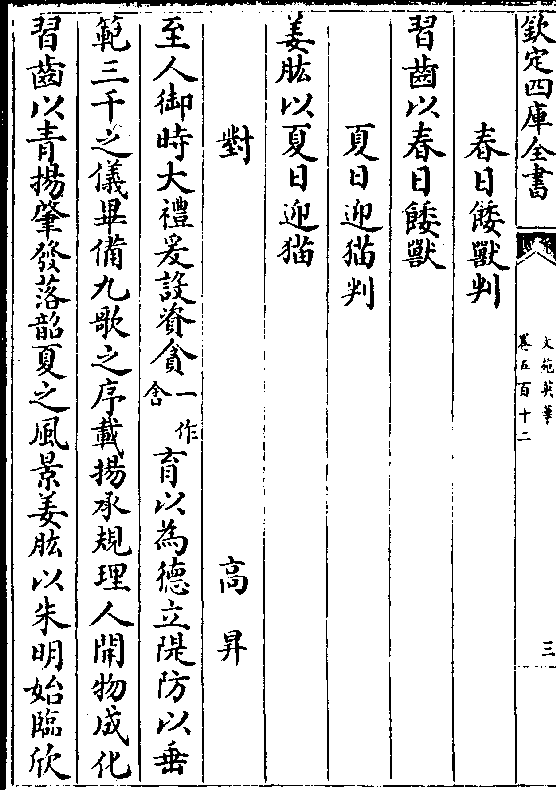 欽定四庫全書
文苑英華
卷五百十二
三
春日餧獸判
習齒以春日餧獸
夏日迎猫判
姜肱以夏日迎猫
對 高昇
至人御時大禮爰設資貪一作含育以為德立隄防以垂
範三千之儀畢備九歌之序載揚承規理人開物成化
習齒以青揚肇發落韶夏之風景姜肱以朱明始臨欣